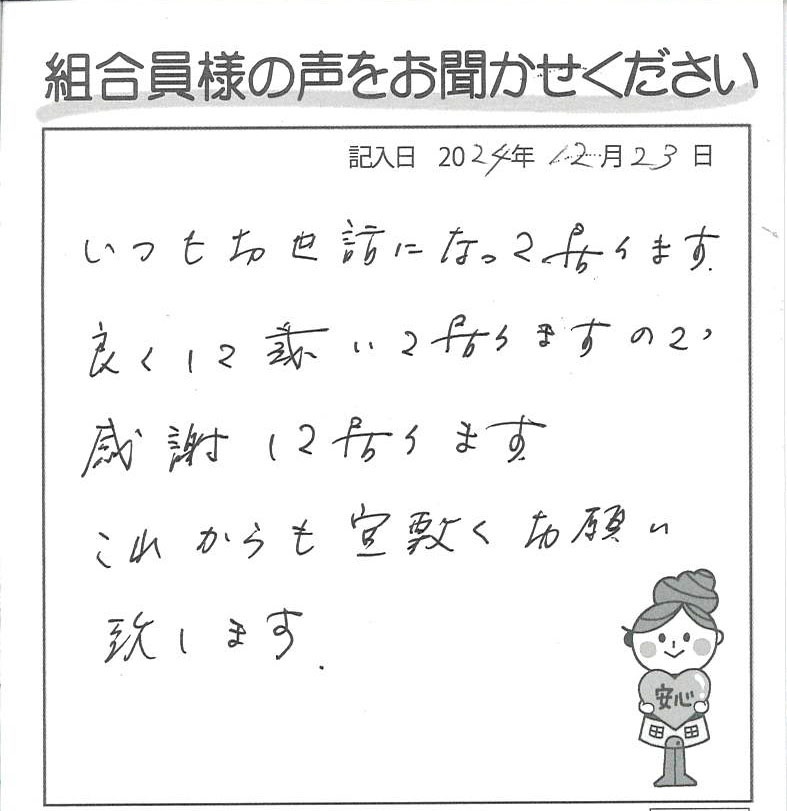 組合員様の声をお聞かせください
記入日 2024年 12月23日
いつもお世話になって居ります.
良くして戴いて居りますので
感謝して居ります
これからも宜敷くお願い
致します.
安心